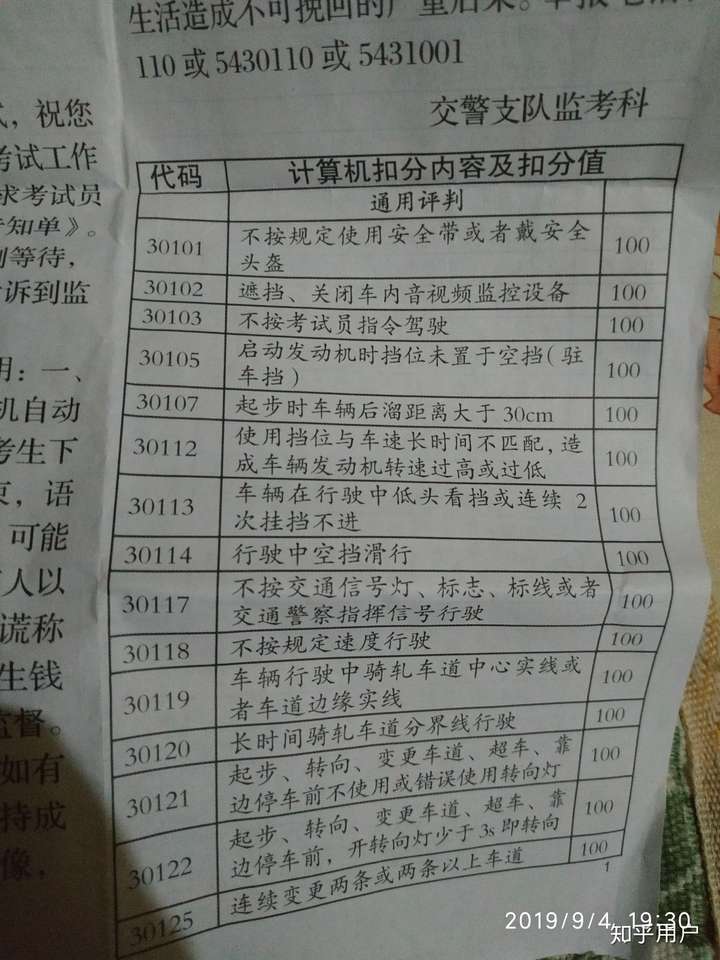 生活造成不可挽回的严重后果。举报电话:
110或5430110或5431001
交警支队监考科
式，祝您
考试工作
求考试员
知单》。
到等待，
诉到监
明：一、
机自动
考生下
束，语
可能
人以
谎称
生钱
监督。
如有
持成
像，
代码 计算机扣分内容及扣分值
通用评判
30101 不按规定使用安全带或者戴安全 100
头盔
30102 遮挡、关闭车内音视频监控设备 100
30103 不按考试员指令驾驶 100
30105 启动发动机时挡位未置于空挡(驻 100
车挡)
30107 起步时车辆后溜距离大于30cm 100
30112 使用挡位与车速长时间不匹配,造 100
成车辆发动机转速过高或过低
30113 车辆在行驶中低头看挡或连续 2 100
次挂挡不进
30114 行驶中空挡滑行 100
30117 不按交通信号灯、标志、标线或者 100
交通警察指挥信号行驶
30118 不按规定速度行驶 100
30119 车辆行驶中骑轧车道中心实线或 100
者车道边缘实线
30120 长时间骑轧车道分界线行驶 100
30121 起步、转向、变更车道、超车、靠 100
边停车前不使用或错误使用转向灯
30122 起步、转向、变更车道、超车、靠 100
边停车前，开转向灯少于3s即转向
30125 连续变更两条或两条以上车道 100
1
2019/9/4 19:30
知乎用户